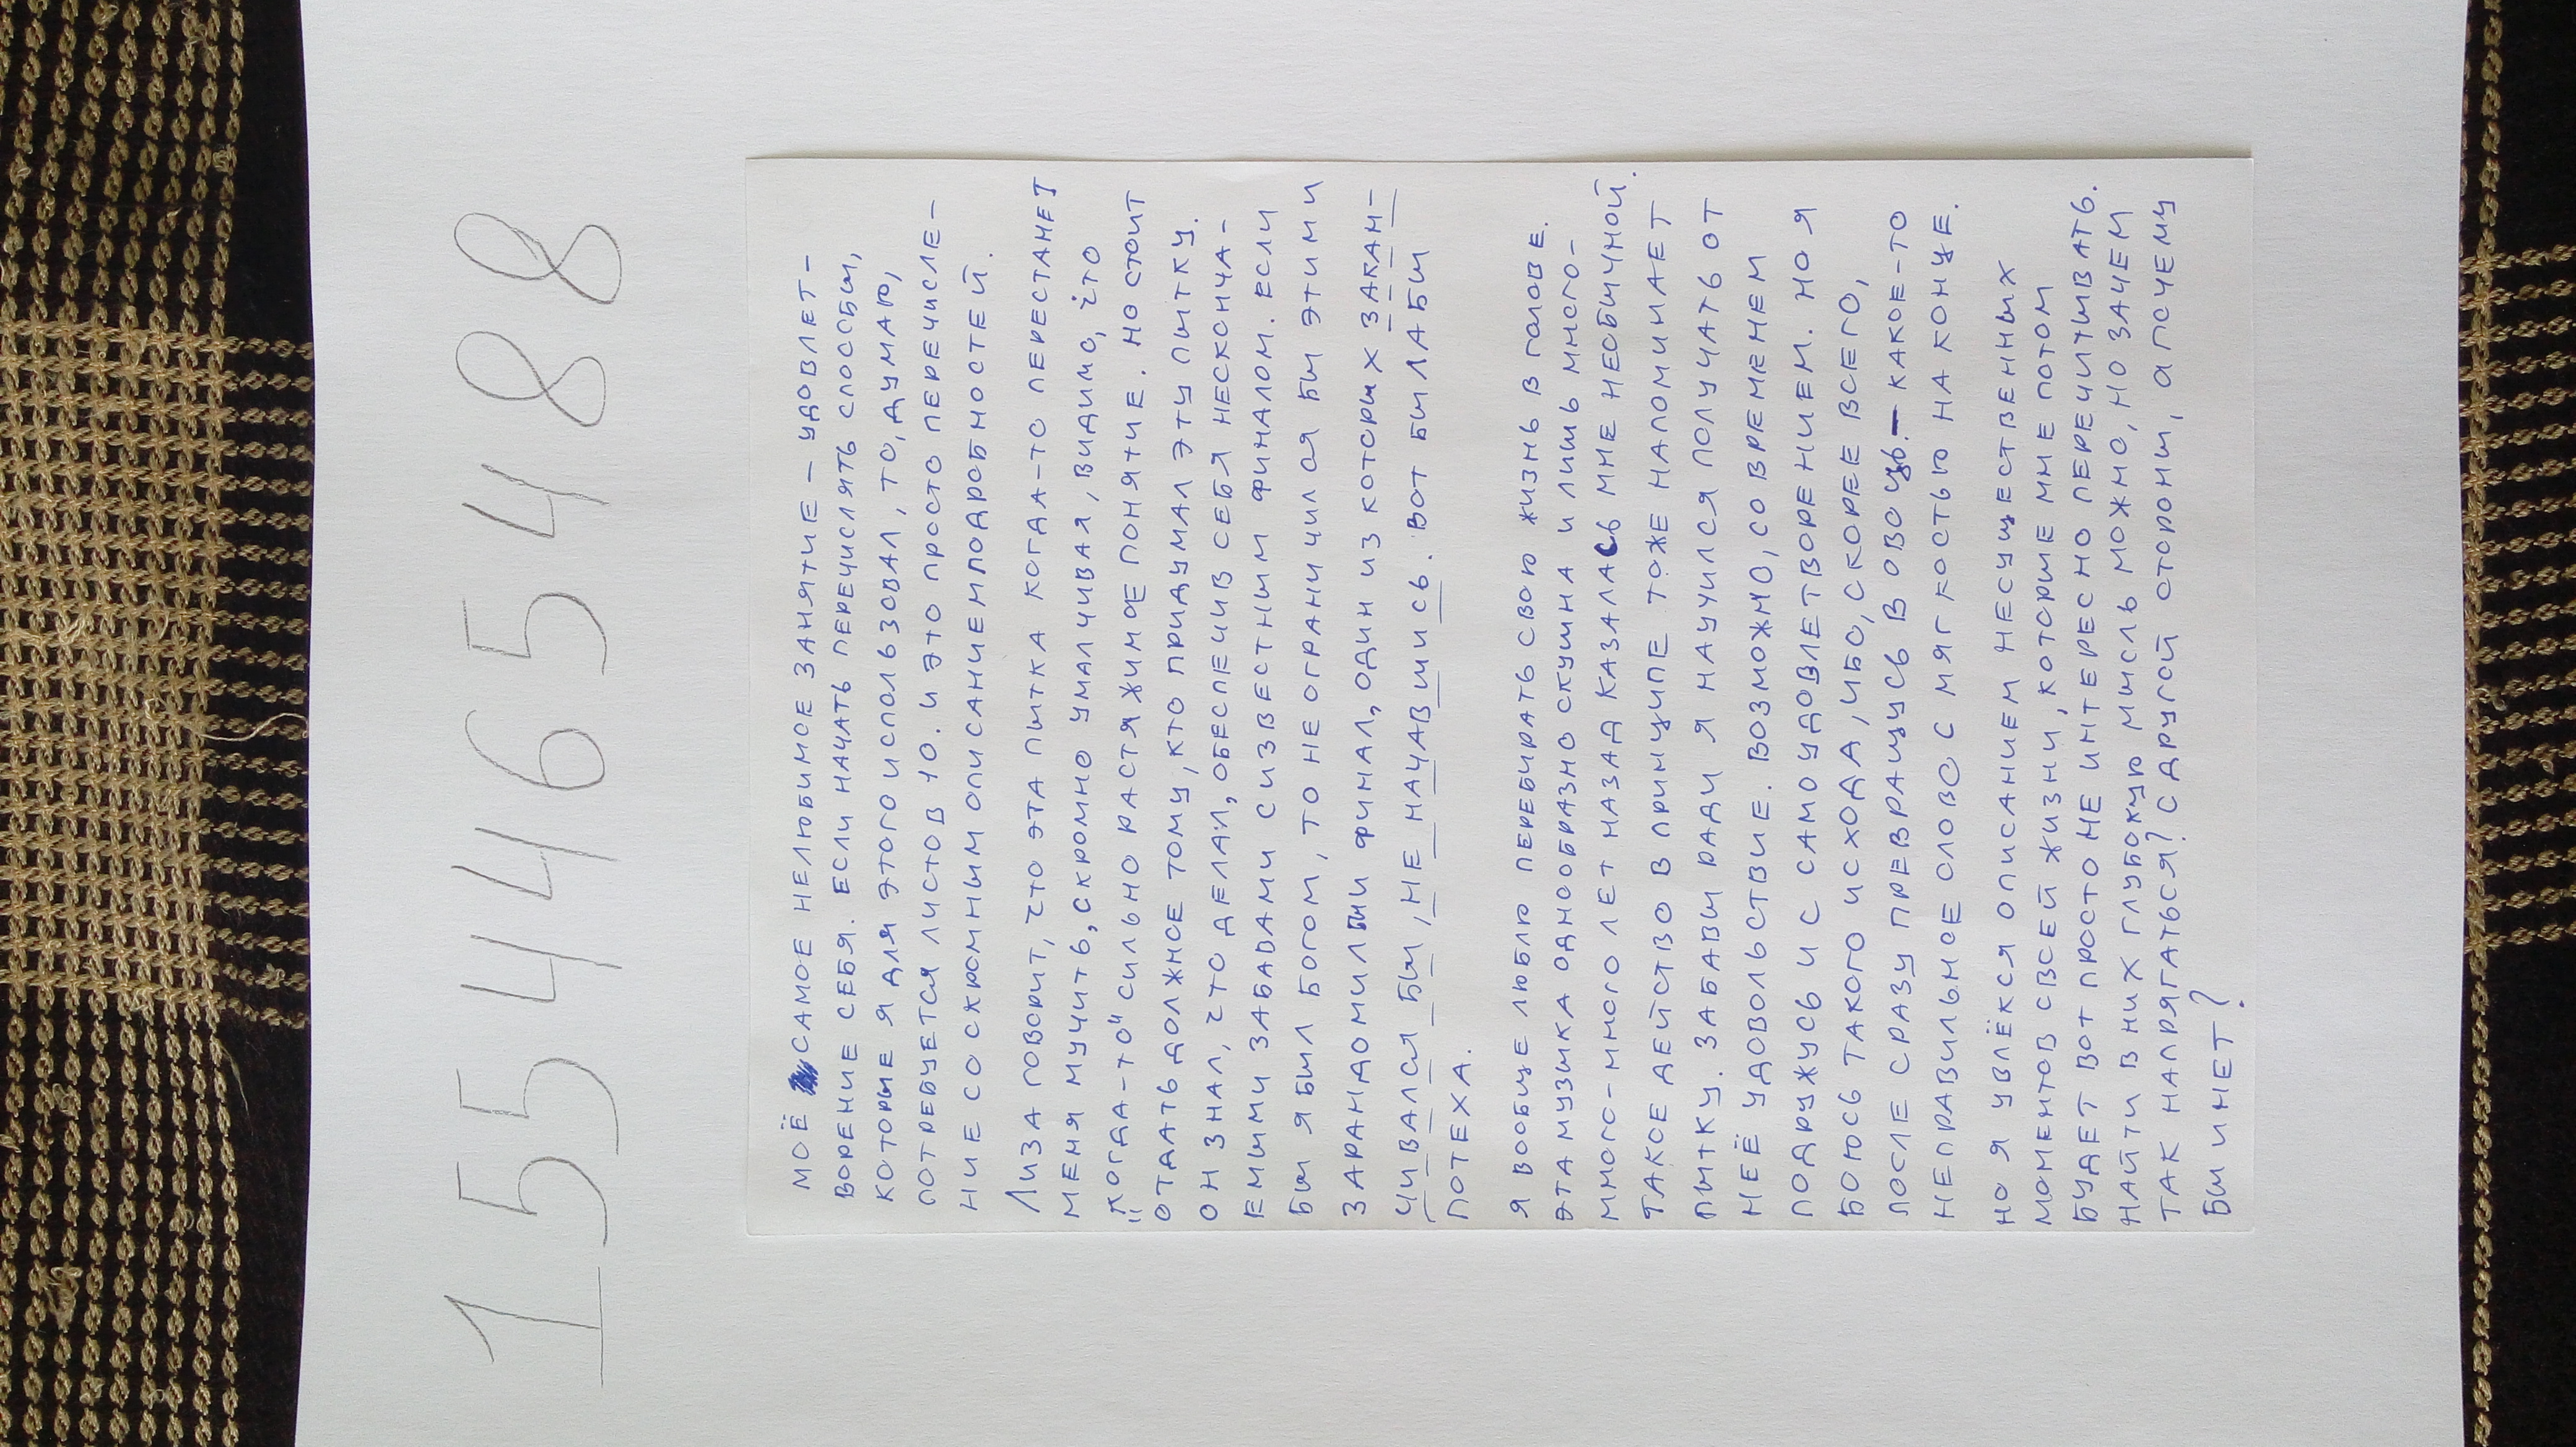 15546548 8
МОЁ САМОЕ НЕЛЮБИМОЕ ЗАНЯТИЕ — УДОВЛЕТ-
ВОРЕНИЕ СЕБЯ. ЕСЛИ НАЧАТЬ ПЕРЕЧИСЛЯТЬ СПОСОБЫ,
КОТОРЫЕ Я ДЛЯ ЭТОГО ИСПОЛЬЗОВАЛ, ТО, ДУМАЮ,
ПОТРЕБУЕТСЯ ЛИСТОВ 10. И ЭТО ПРОСТО ПЕРЕЧИСЛЕ-
НИЕ СО СКРОМНЫМ ОПИСАНИЕМ ПОДРОБНОСТЕЙ.
ЛИЗА ГОВОРИТ, ЧТО ЭТА ПЫТКА КОГДА-ТО ПЕРЕСТАНЕТ
МЕНЯ МУЧИТЬ, СКРОМНО УМАЛЧИВАЯ, ВИДИМО, ЧТО
"КОГДА-ТО" СИЛЬНО РАСТЯЖИМОЕ ПОНЯТИЕ. НО СТОИТ
ОТДАТЬ ДОЛЖНОЕ ТОМУ, КТО ПРИДУМАЛ ЭТУ ПЫТКУ.
ОН ЗНАЛ, ЧТО ДЕЛАЛ, ОБЕСПЕЧИВ СЕБЯ НЕСКОНЧА-
ЕМЫМИ ЗАБАВАМИ С ИЗВЕСТНЫМ ФИНАЛОМ. ЕСЛИ
БЫ Я БЫЛ БОГОМ, ТО НЕ ОГРАНИЧИЛСЯ БЫ ЭТИМ И
ЗАРАНДОМИЛ БЫ ФИНАЛ, ОДИН ИЗ КОТОРЫХ ЗАКАН-
ЧИВАЛСЯ БЫ, НЕ НАЧАВШИСЬ. ВОТ БЫЛА БЫ
ПОТЕХА.
Я ВООБЩЕ ЛЮБЛЮ ПЕРЕБИРАТЬ СВОЮ ЖИЗНЬ В ГОЛОВЕ.
ЭТА МУЗЫКА ОДНООБРАЗНО СКУШНА И ЛИШЬ МНОГО-
МНОГО-МНОГО ЛЕТ НАЗАД КАЗАЛАСЬ МНЕ НЕОБЫЧНОЙ.
ТАКОЕ ДЕЙСТВО В ПРИНЦИПЕ ТОЖЕ НАПОМИНАЕТ
ПЫТКУ. ЗАБАВЫ РАДИ Я НАУЧИЛСЯ ПОЛУЧАТЬ ОТ
НЕЁ УДОВОЛЬСТВИЕ. ВОЗМОЖНО, СО ВРЕМЕНЕМ
ПОДРУЖУСЬ И С САМОУДОВЛЕТВОРЕНИЕМ. НО Я
БОЮСЬ ТАКОГО ИСХОДА, ИБО, СКОРЕЕ ВСЕГО,
ПОСЛЕ СРАЗУ ПРЕВРАЩУСЬ В ОВОЩЬ. — КАКОЕ-ТО
НЕПРАВИЛЬНОЕ СЛОВО С МЯГКОСТЬЮ НА КОНЦЕ.
НО Я УВЛЁКСЯ ОПИСАНИЕМ НЕСУЩЕСТВЕННЫХ
МОМЕНТОВ СВОЕЙ ЖИЗНИ, КОТОРЫЕ МНЕ ПОТОМ
БУДЕТ ВОТ ПРОСТО НЕ ИНТЕРЕСНО ПЕРЕЧИТЫВАТЬ.
НАЙТИ В НИХ ГЛУБОКУЮ МЫСЛЬ МОЖНО, НО ЗАЧЕМ
ТАК НАПРЯГАТЬСЯ? С ДРУГОЙ СТОРОНЫ, А ПОЧЕМУ
БЫ И НЕТ?